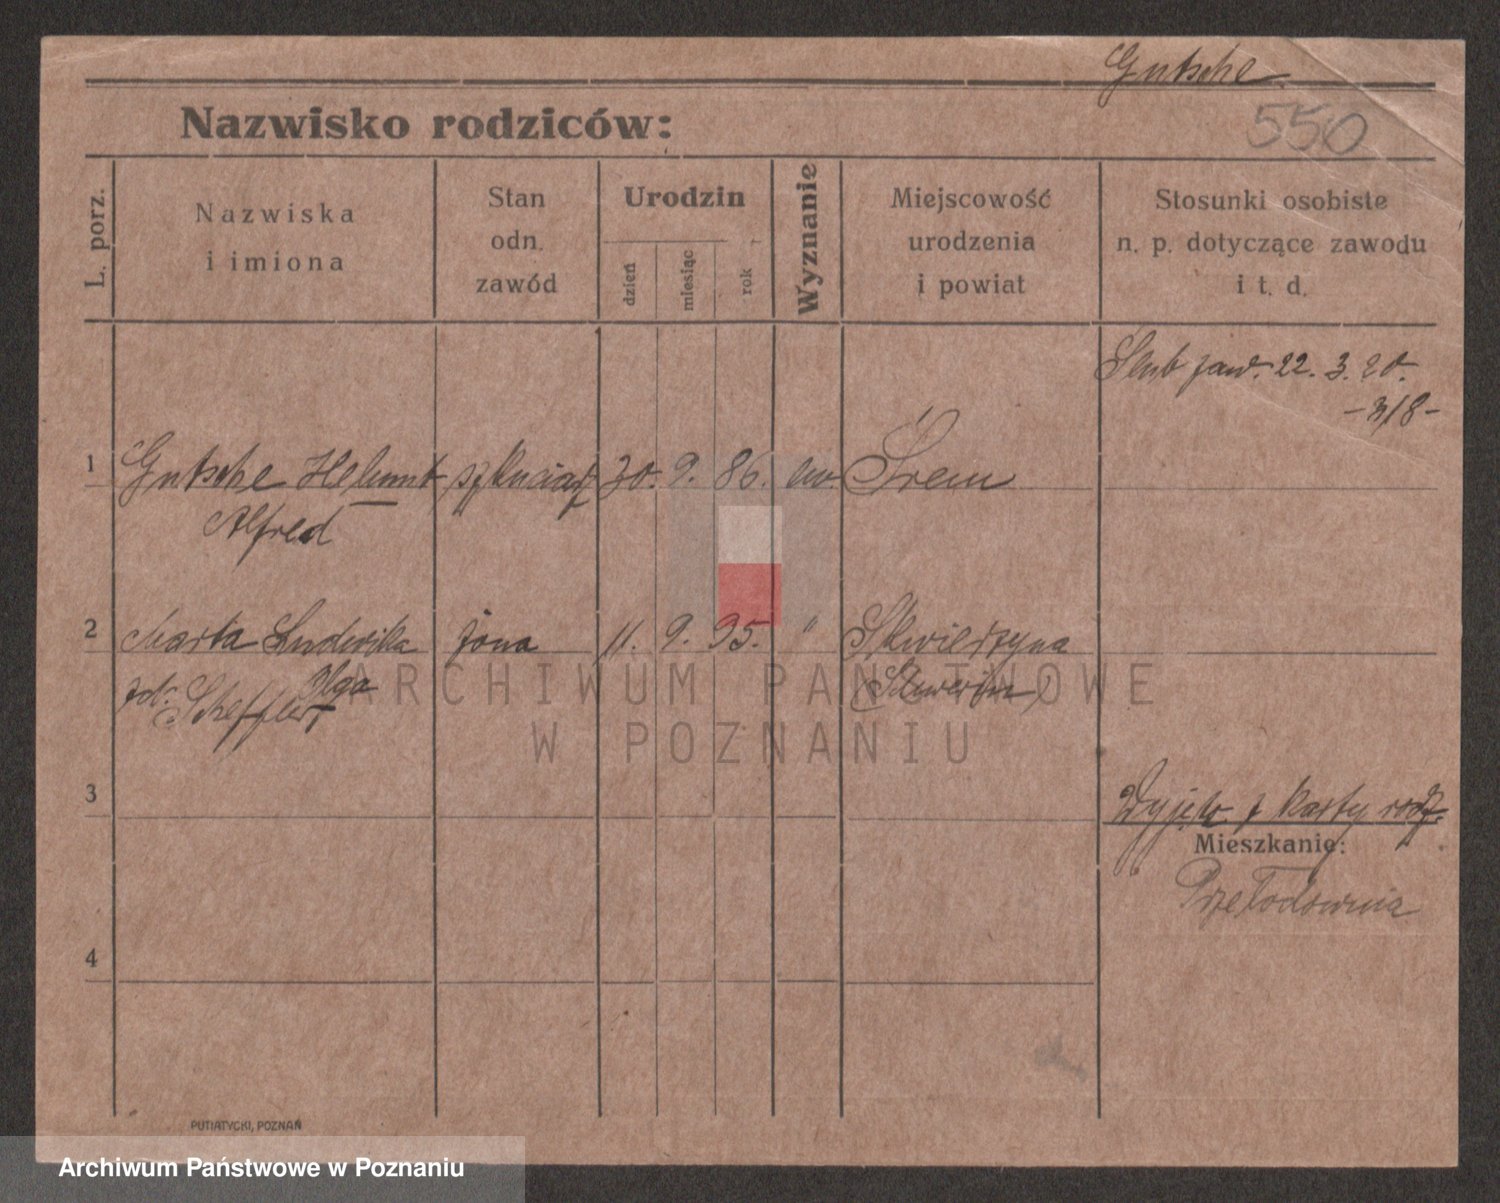 Gutsche
550
Nazwisko rodziców:
L. porz.
Nazwiska
i imiona
Stan
odn.
zawód
Urodzin
dzień
miesiąc
rok
Wyznanie
Miejscowość
urodzenia
i powiat
Stosunki osobiste
n. p. dotyczące zawodu
i t. d.
Ślub zaw. 22. 3. 20.
-318-
1 Gutsche Helmut 30. 9. 86. ew. Śrem
Alfred
2 Marta Ludwika żona 11. 9. 95. " Skwierzyna
Olga (Schwerin)
zd. Scheffler
ARCHIWUM PAŃSTWOWE
W POZNANIU
3
Wyjęto z karty rodz.
Mieszkanie:
Przełodownia
4
PUTIATYCKI, POZNAŃ
Archiwum Państwowe w Poznaniu